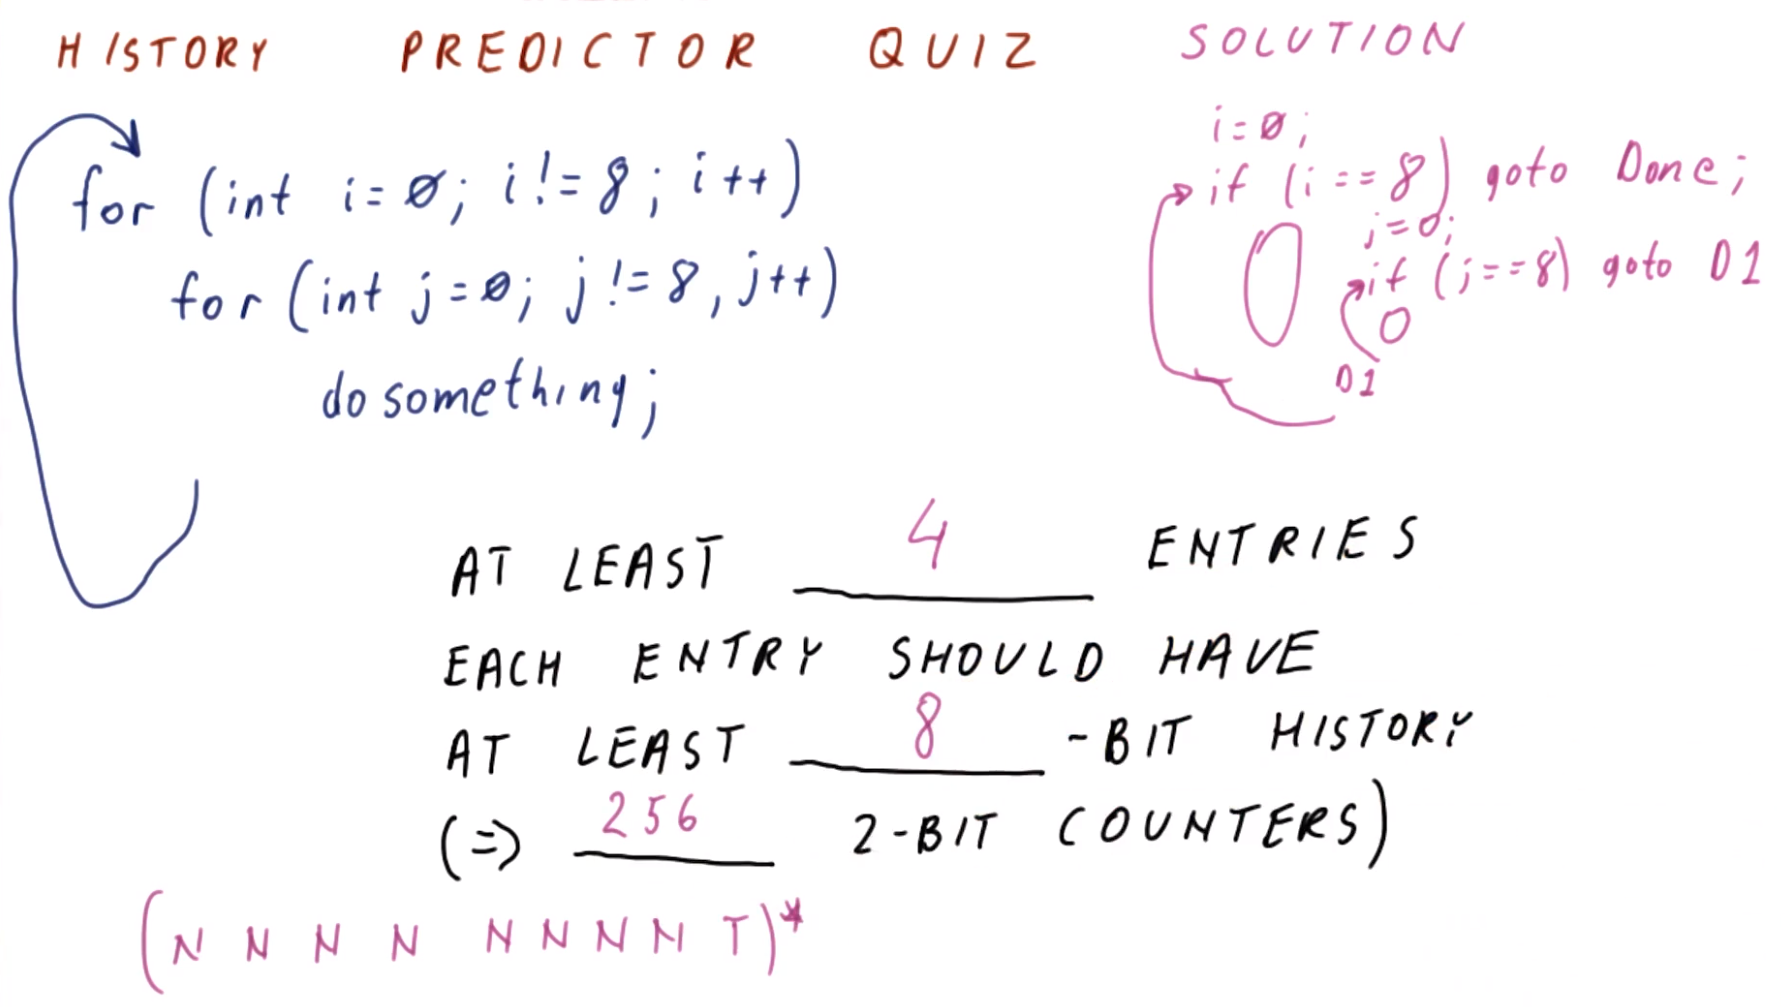 HISTORY PREDICTOR QUIZ SOLUTION
for (int i=0; i!=8; i++)
for (int j=0; j!=8, j++)
do something;
i=0;
if (i==8) goto Done;
j=0;
if (j==8) goto D1
D1
AT LEAST 4 ENTRIES
EACH ENTRY SHOULD HAVE
AT LEAST 8 -BIT HISTORY
(=> 256 2-BIT COUNTERS)
(N N N N N N N N T)*